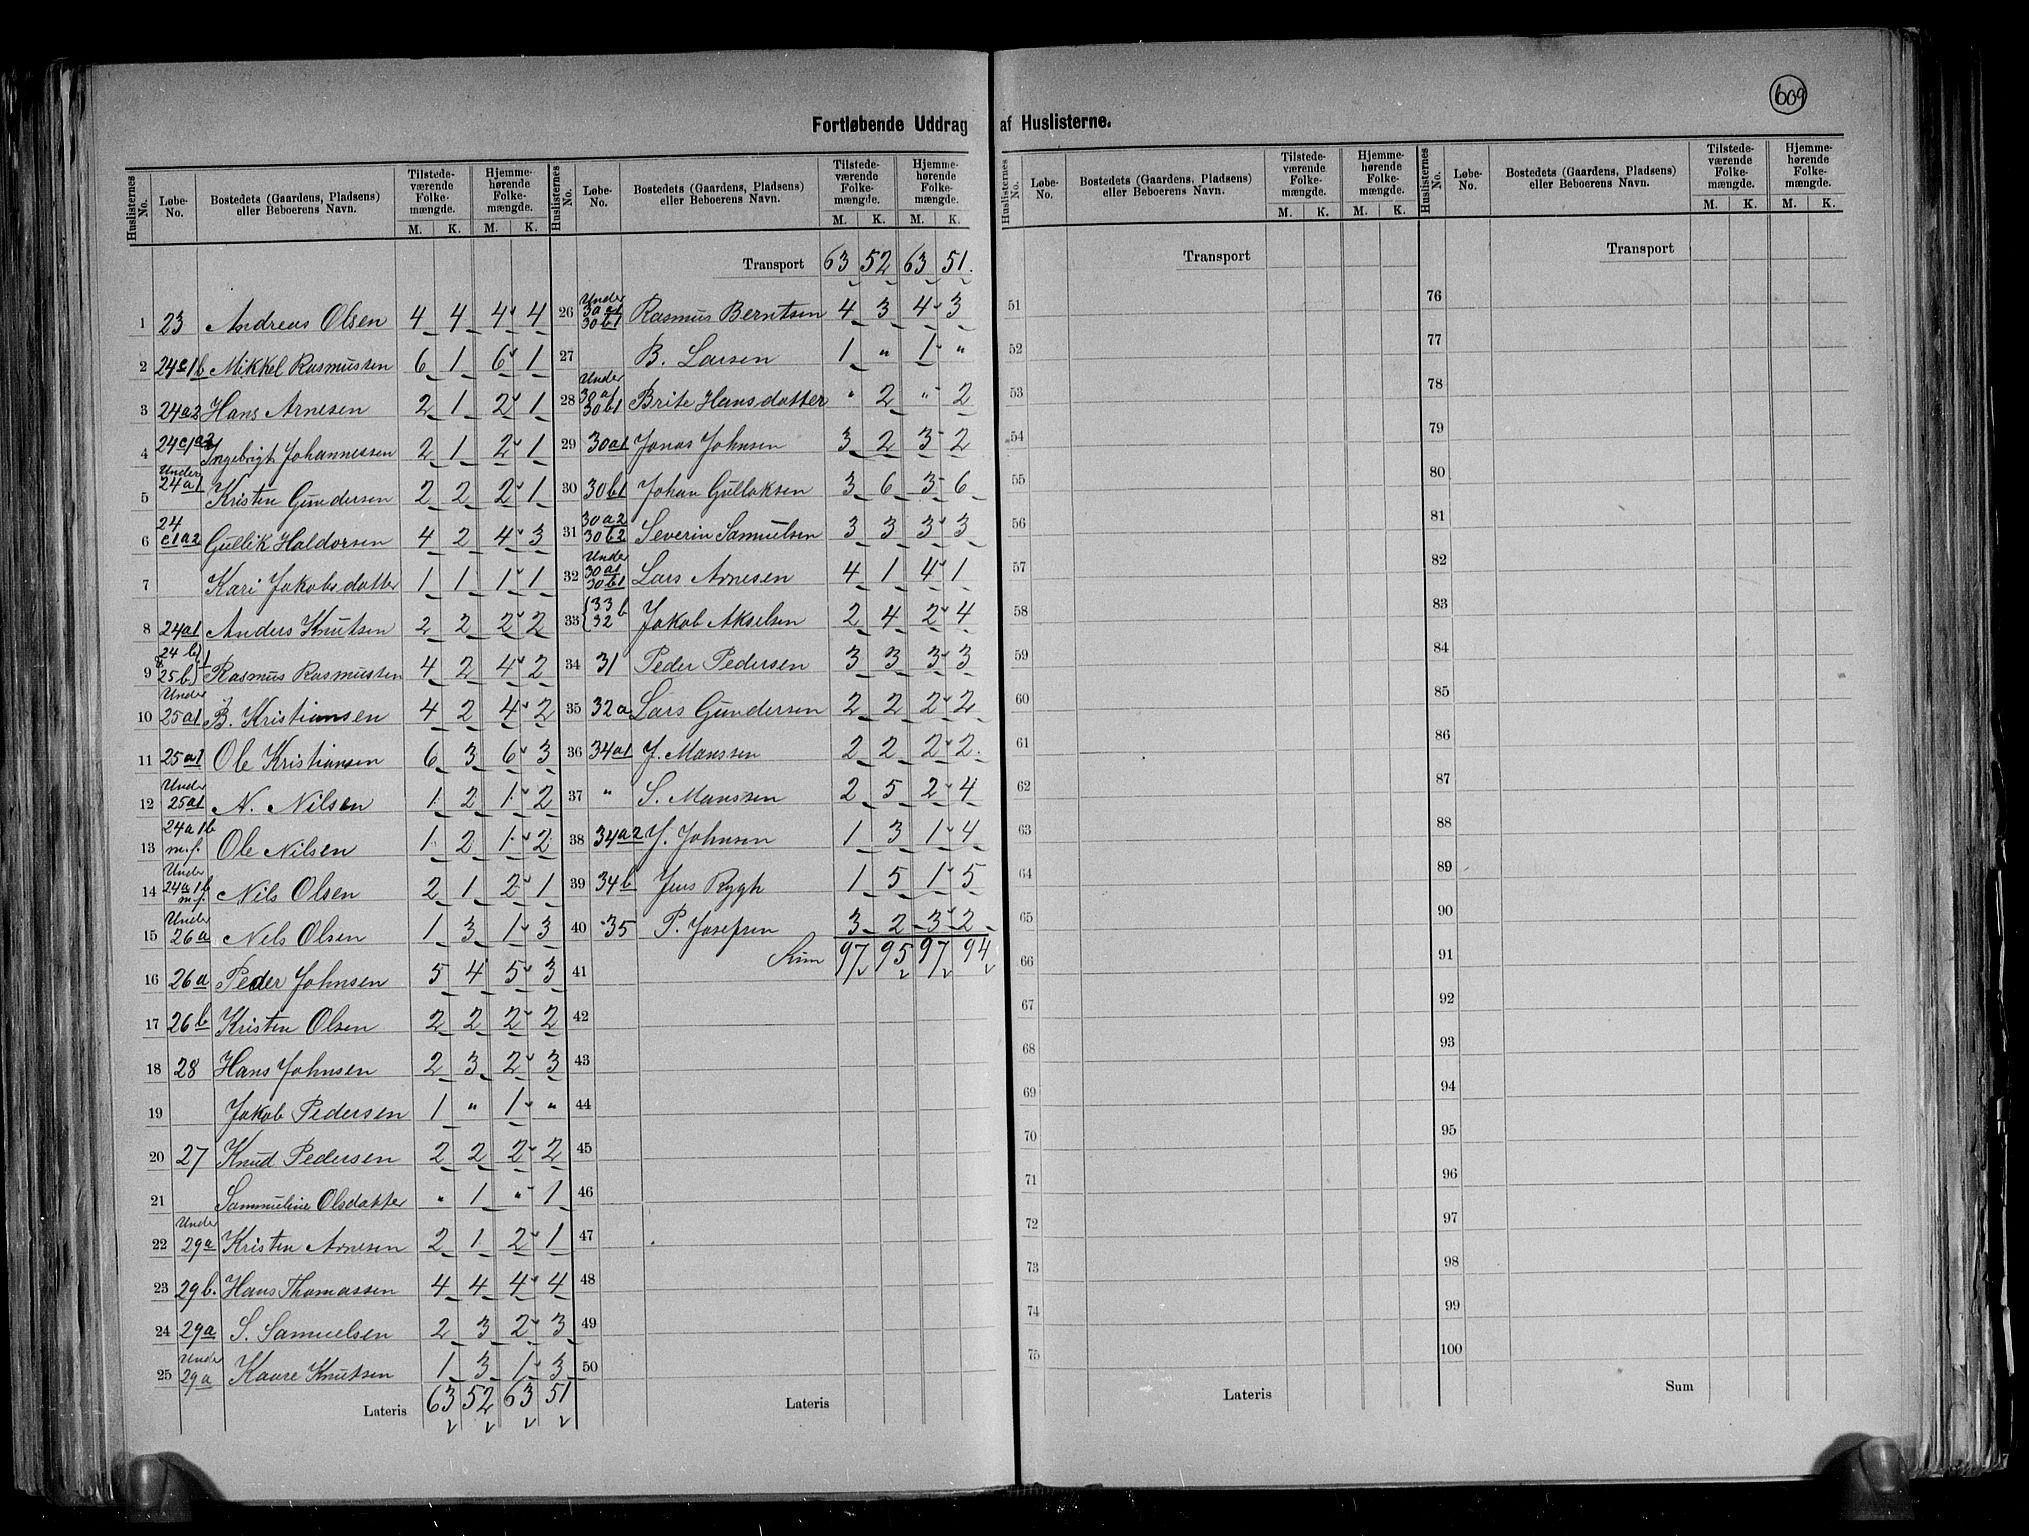 609
Fortløbende Uddrag af Huslisterne.
Huslisternes No. Løbe-No. Bostedets (Gaardens, Pladsens) eller Beboerens Navn. Tilstedeværende Folkemængde. M. K. Hjemmehørende Folkemængde. M. K.
1 23 Andreas Olsen 4 4 4 4
2 24c1b Mikkel Rasmussen 6 1 6 1
3 24a2 Hans Arnesen 2 1 2 1
4 24c1a2 Ingebrigt Johannessen 2 1 2 1
5 Under 24a1 Kristen Gundersen 2 2 2 1
6 24 c1a2 Gullik Haldorsen 4 2 4 3
7 Kari Jakobsdatter 1 1 1 1
8 24a1 Anders Knutsen 2 2 2 2
9 24 b 25 b 1 Rasmus Rasmussen 4 2 4 2
10 Under 25a1 B. Kristiansen 4 2 4 2
11 25a1 Ole Kristiansen 6 3 6 3
12 Under 25a1 N. Nilsen 1 2 1 2
13 24a1b m.f. Ole Nilsen 1 2 1 2
14 Under 24a1b m.f. Nils Olsen 2 1 2 1
15 Under 26a Nels Olsen 1 3 1 3
16 26a Peder Johnsen 5 4 5 3
17 26b Kristen Olsen 2 2 2 2
18 28 Hans Johnsen 2 3 2 3
19 Jakob Pedersen 1 " 1 "
20 27 Knud Pedersen 2 2 2 2
21 Sammueline Olsdatter " 1 " 1
22 Under 29a Kristen Arnesen 2 1 2 1
23 29b. Hans Thomassen 4 4 4 4
24 29a S. Samuelsen 2 3 2 3
25 Under 29a Kaare Knutsen 1 3 1 3
Lateris 63 52 63 51
Huslisternes No. Løbe-No. Bostedets (Gaardens, Pladsens) eller Beboerens Navn. Tilstedeværende Folkemængde. M. K. Hjemmehørende Folkemængde. M. K.
Transport 63 52 63 51.
26 Under 30a1 30b1 Rasmus Berntsen 4 3 4 3
27 B. Larsen 1 " 1 "
28 Under 30a1 30b1 Brite Hansdatter " 2 " 2
29 30a1 Jonas Johnsen 3 2 3 2
30 30b1 Johan Gullaksen 3 6 3 6
31 30a2 30b2 Severin Samuelsen 3 3 3 3
32 Under 30a1 30b1 Lars Arnesen 4 1 4 1
33 {33b 32 Jakob Akselsen 2 4 2 4
34 31 Peder Pedersen 3 3 3 3
35 32a Lars Gundersen 2 2 2 2
36 34a1 J. Manssen 2 2 2 2
37 " S. Manssen 2 5 2 4
38 34a2 J. Johnsen 1 3 1 4
39 34b Jens Rygh 1 5 1 5
40 35 P. Josefsen 3 2 3 2
Sum 97 95 97 94
41
42
43
44
45
46
47
48
49
50
Lateris
Huslisternes No. Løbe-No. Bostedets (Gaardens, Pladsens) eller Beboerens Navn. Tilstedeværende Folkemængde. M. K. Hjemmehørende Folkemængde. M. K.
Transport
51
52
53
54
55
56
57
58
59
60
61
62
63
64
65
66
67
68
69
70
71
72
73
74
75
Lateris
Huslisternes No. Løbe-No. Bostedets (Gaardens, Pladsens) eller Beboerens Navn. Tilstedeværende Folkemængde. M. K. Hjemmehørende Folkemængde. M. K.
Transport
76
77
78
79
80
81
82
83
84
85
86
87
88
89
90
91
92
93
94
95
96
97
98
99
100
Sum